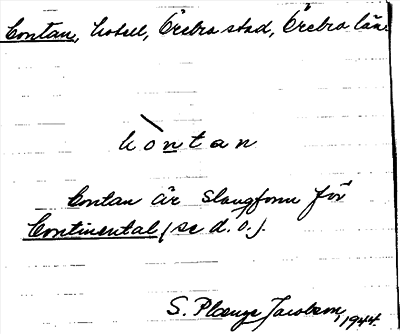 Contan, hotell, Örebro stad, Örebro län
kòntan
Contan är slangform för
Continental (se d. o.).
S. Jacobson, 1944